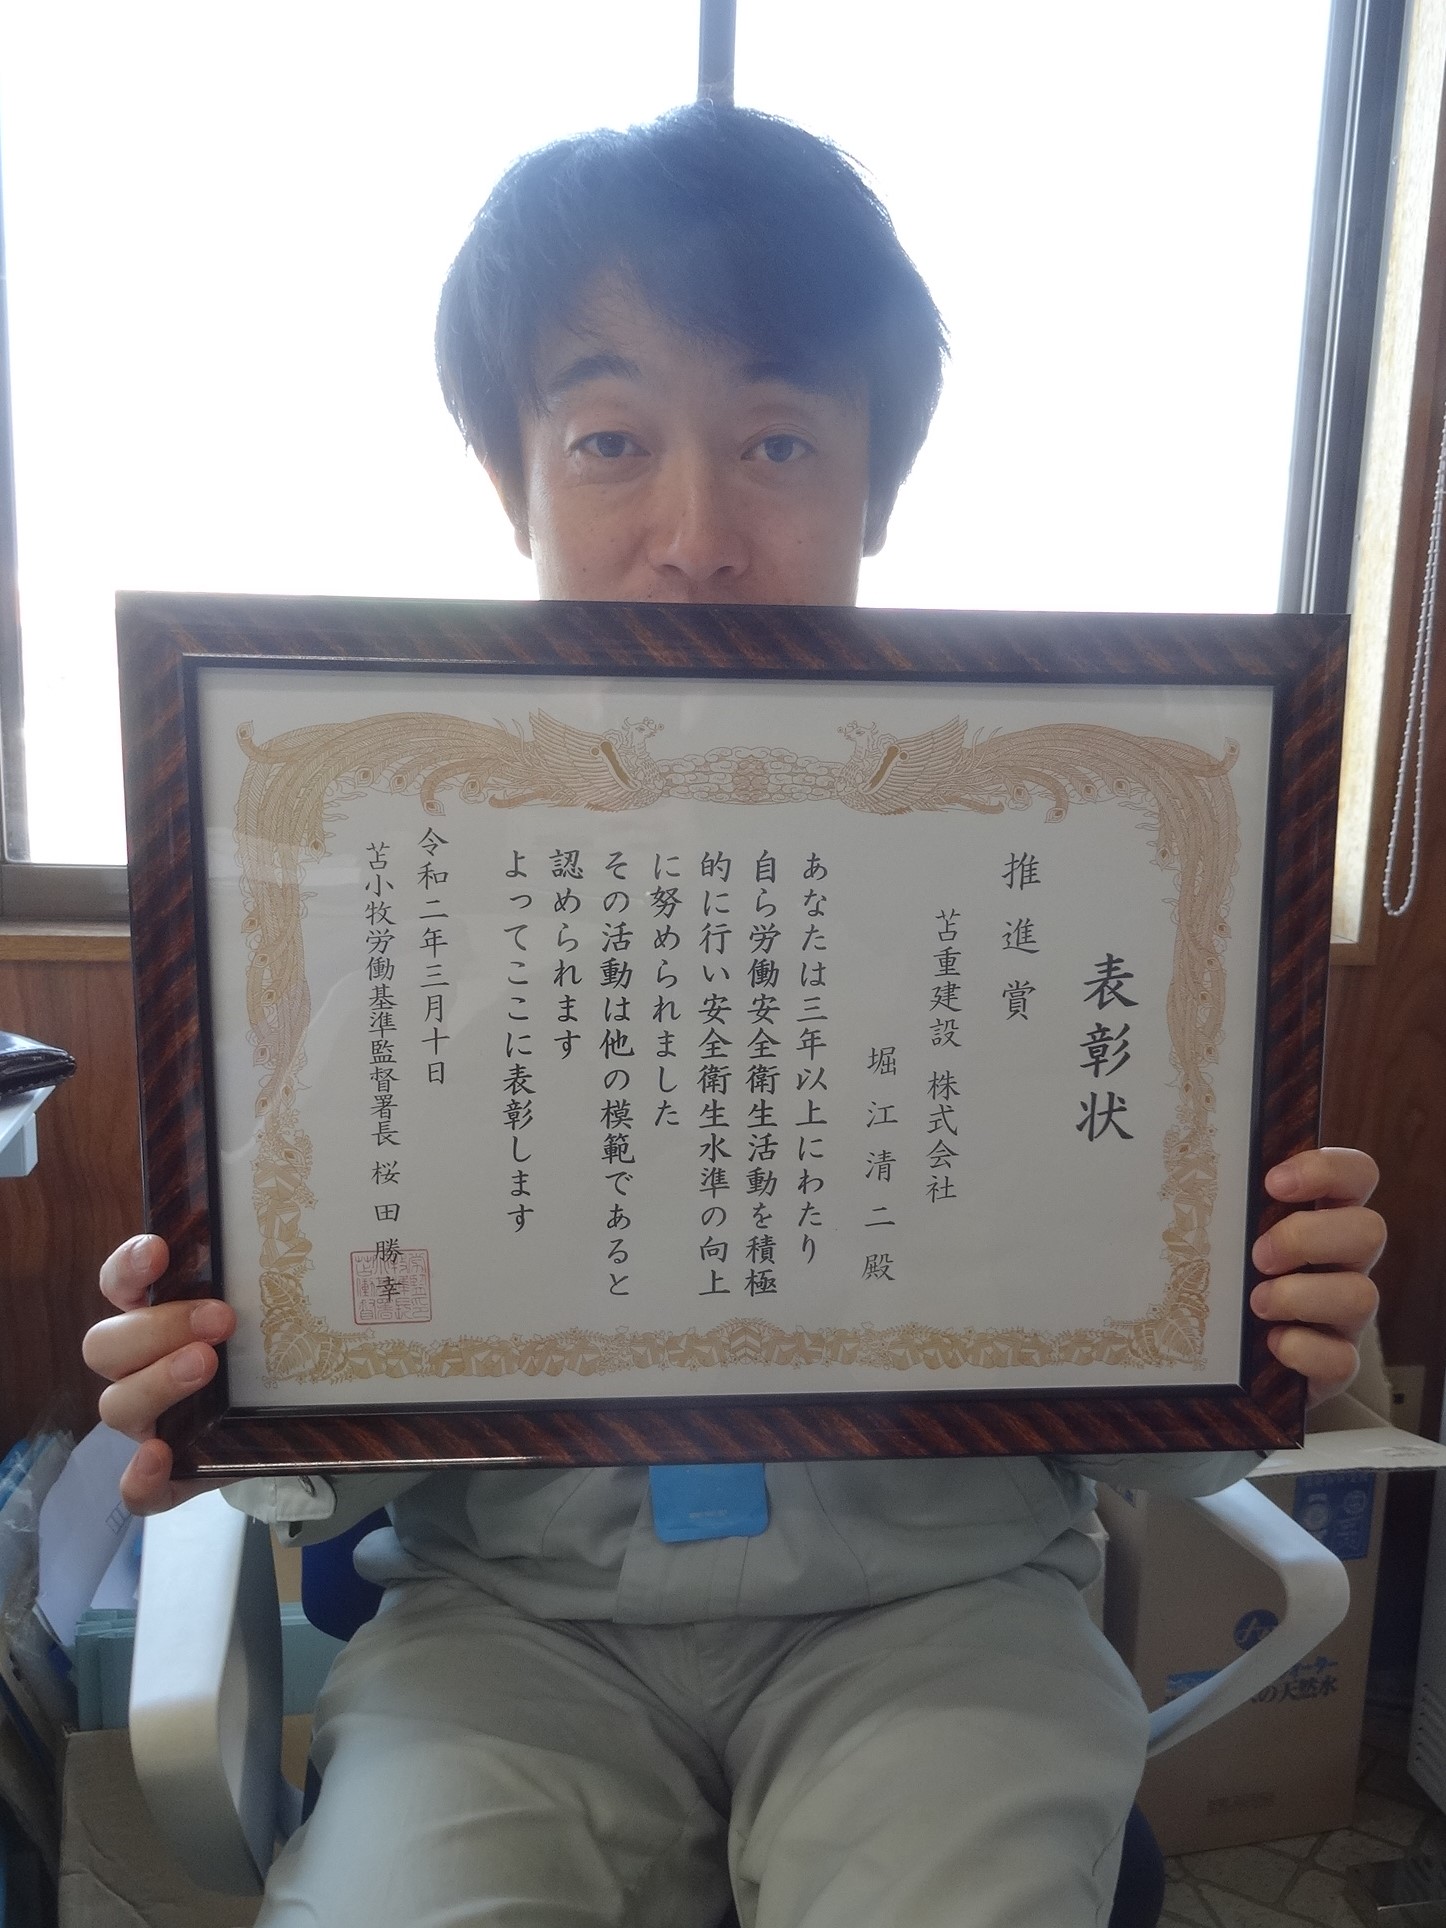 表彰状
推進賞
苫重建設 株式会社
堀江清二 殿
あなたは三年以上にわたり
自ら労働安全衛生活動を積極
的に行い安全衛生水準の向上
に努められました
その活動は他の模範であると
認められます
よってここに表彰します
令和二年三月十日
苫小牧労働基準監督署長 桜田勝幸
の天然水